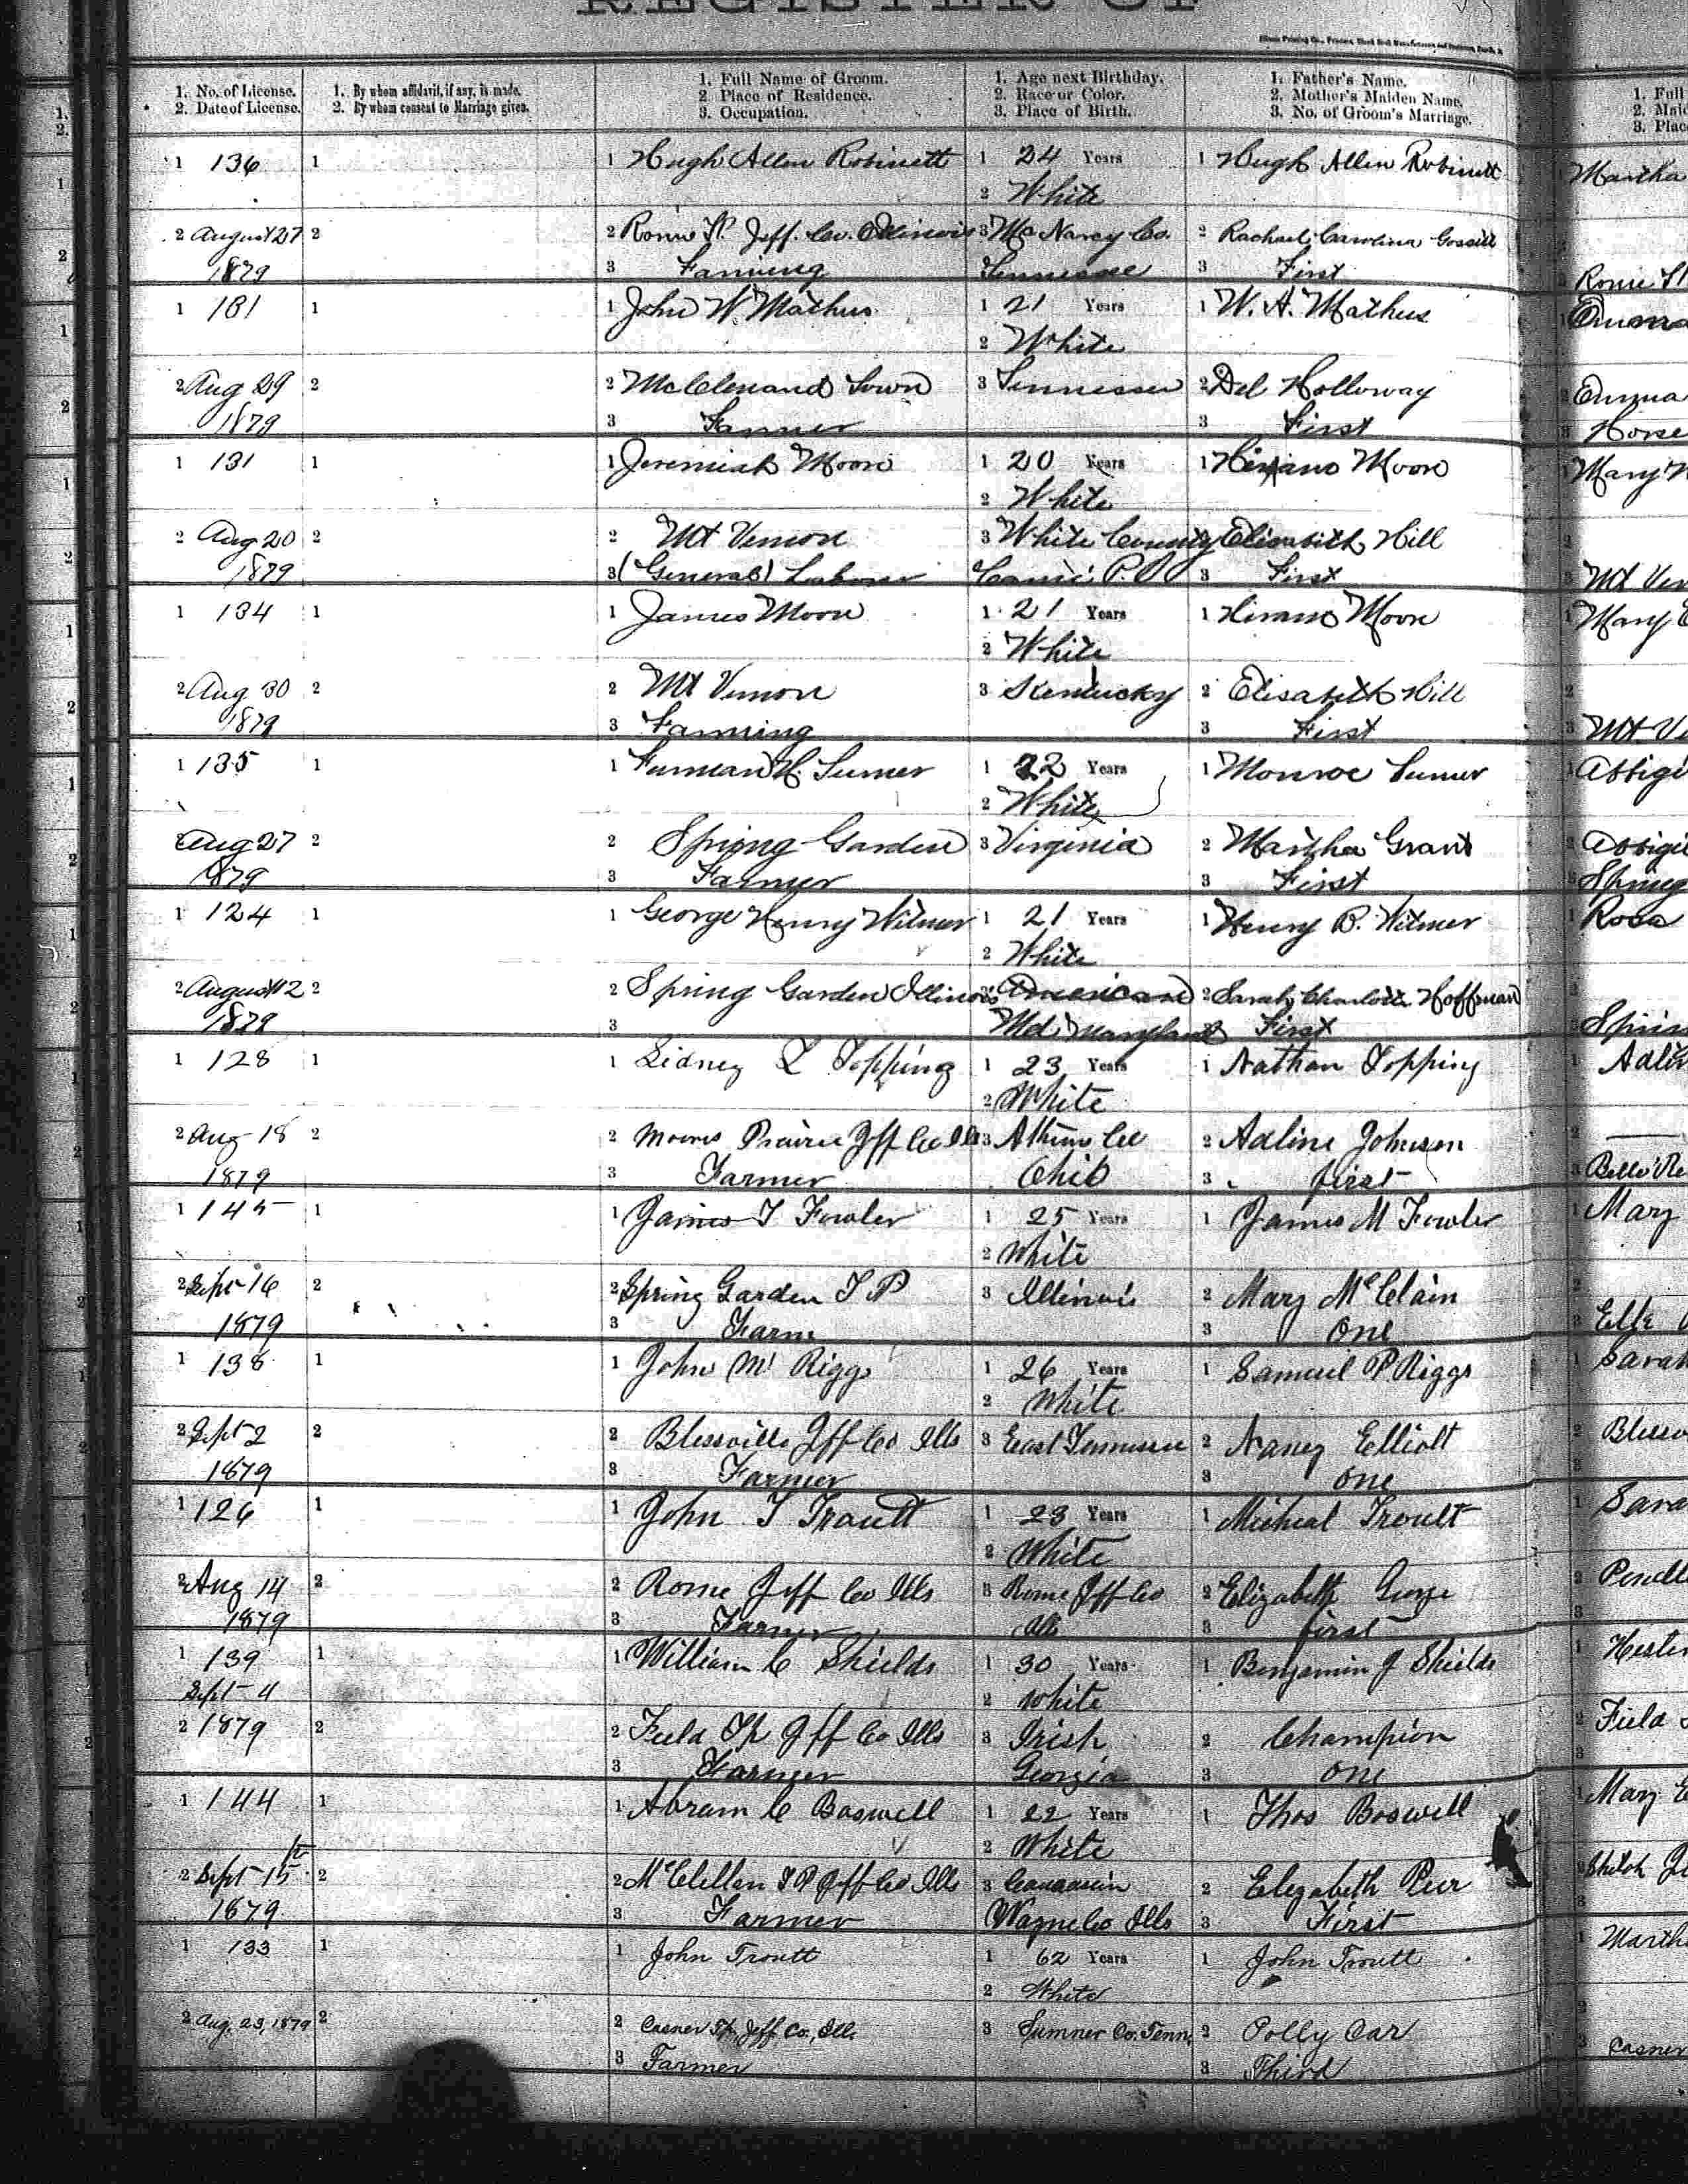 REGISTER OF
1. No. of License. 1. By whom affidavit, if any, is made. 1. Full Name of Groom. 1. Age next Birthday. 1. Father's Name. 1. Full
2. Date of License. 2. By whom consent to Marriage given. 2. Place of Residence. 2. Race or Color. 2. Mother's Maiden Name.
3. Occupation. 3. Place of Birth. 3. No. of Groom's Marriage. 3. Place
1 136 1 1 Hugh Allen Robinett 1 24 Years 1 Hugh Allen Robinett Martha
2 White
2 August 27 2 2 Rome Tp. Jeff. Co. Illinois 3 Mc Nary Co. 2 Rachael Carolina
1879 3 Farming Tennessee 3 First Rome
1 131 1 1 John W. Mathus 1 21 Years 1 W. A. Mathus
2 White
2 Aug 29 2 2 McClenand Town 3 Tennessee 2 Del Holloway Emma
1879 3 Farmer 3 First
1 131 1 1 Jeremiah Moore 1 20 Years 1 Hiram Moore Mary
2 White
2 Aug 20 2 2 Mt Vernon 3 White County 2 Elisabeth Hill
1879 3 (General) Laborer Carmi P.O 3 First Mt Ver
1 134 1 1 James Moore 1 21 Years 1 Hiram Moore Mary E
2 White
2 Aug 30 2 2 Mt Vernon 3 Kentucky 2 Elisabeth Hill
1879 3 Farming 3 First Mt Ve
1 135 1 1 Furman H. Turner 1 22 Years 1 Monroe Turner Abbigi
2 White
2 Aug 27 2 2 Spring Garden 3 Virginia 2 Martha Grant Abbigi
1879 3 Farmer 3 First Spring
1 124 1 1 George Henry Witmer 1 21 Years 1 Henry B. Witmer Rosa
2 White
2 August 12 2 2 Spring Garden Illinois 3 American 2 Sarah Charlotte Hoffman
1879 3 Md Maryland First Sprin
1 128 1 1 Sidney L Topping 1 23 Years 1 Nathan Topping Adlin
2 White
2 Aug 18 2 2 Moores Prairie Jeff Co Ills 3 Athens Co 2 Adline Johnson
1879 3 Farmer Ohio 3 first Belle Re
1 145 1 1 James T Fowler 1 25 Years 1 James M Fowler Mary
2 White
2 Sept 16 2 2 Spring Garden T P 3 Illinois 2 Mary McClain
1879 3 Farm 3 One Elk
1 138 1 1 John M Riggs 1 26 Years 1 Samuel P Riggs Sarah
2 White
2 Sept 2 2 2 Blissville Jeff Co Ills 3 East Tennessee 2 Nancy Elliott Blissv
1879 3 Farmer 3 One
1 126 1 1 John T Troutt 1 23 Years 1 Micheal Troutt Sara
2 White
2 Aug 14 2 2 Rome Jeff Co Ills 3 Rome Jeff Co 2 Elizabeth George Pendl
1879 3 Farmer Ills 3 first
1 139 1 1 William C Shields 1 30 Years 1 Benjamin J Shields Hester
Sept 4 2 White
2 1879 2 2 Field Tp Jeff Co Ills 3 Irish 2 Champion Field
3 Farmer Georgia 3 One
1 144 1 1 Abram C Boswell 1 22 Years 1 Thos Boswell Mary E
2 White
2 Sept 15 2 2 McClellen T P Jeff Co Ills 3 Caucasian 2 Elizabeth Peer Shiloh
1879 3 Farmer Wayne Co Ills 3 First
1 133 1 1 John Troutt 1 62 Years 1 John Troutt Marth
2 White
2 Aug. 23, 1879 2 2 Casner Tp. Jeff. Co., Ills. 3 Sumner Co. Tenn, 2 Polly Car
3 Farmer 3 Third Casner